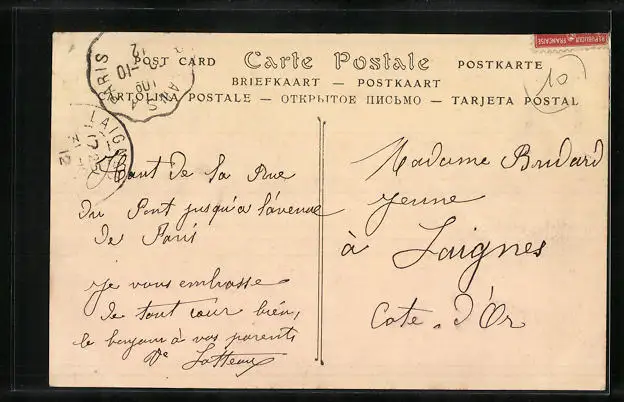 REPUBLIQUE FRANÇAISE
POST CARD Carte Postale POSTKARTE
BRIEFKAART — POSTKAART
CARTOLINA POSTALE — ОТКРЫТОЕ ПИСЬМО — TARJETA POSTAL
PARIS
LAIGNES
10
Haut de la Rue
du Pont jusqu'a l'avenue
de Paris
Je vous embrasse
de tout cœur bien,
le bonjour à vos parents
Vve Lotteau
Madame Brudard
Jeune
à Laignes
Cote-d'Or